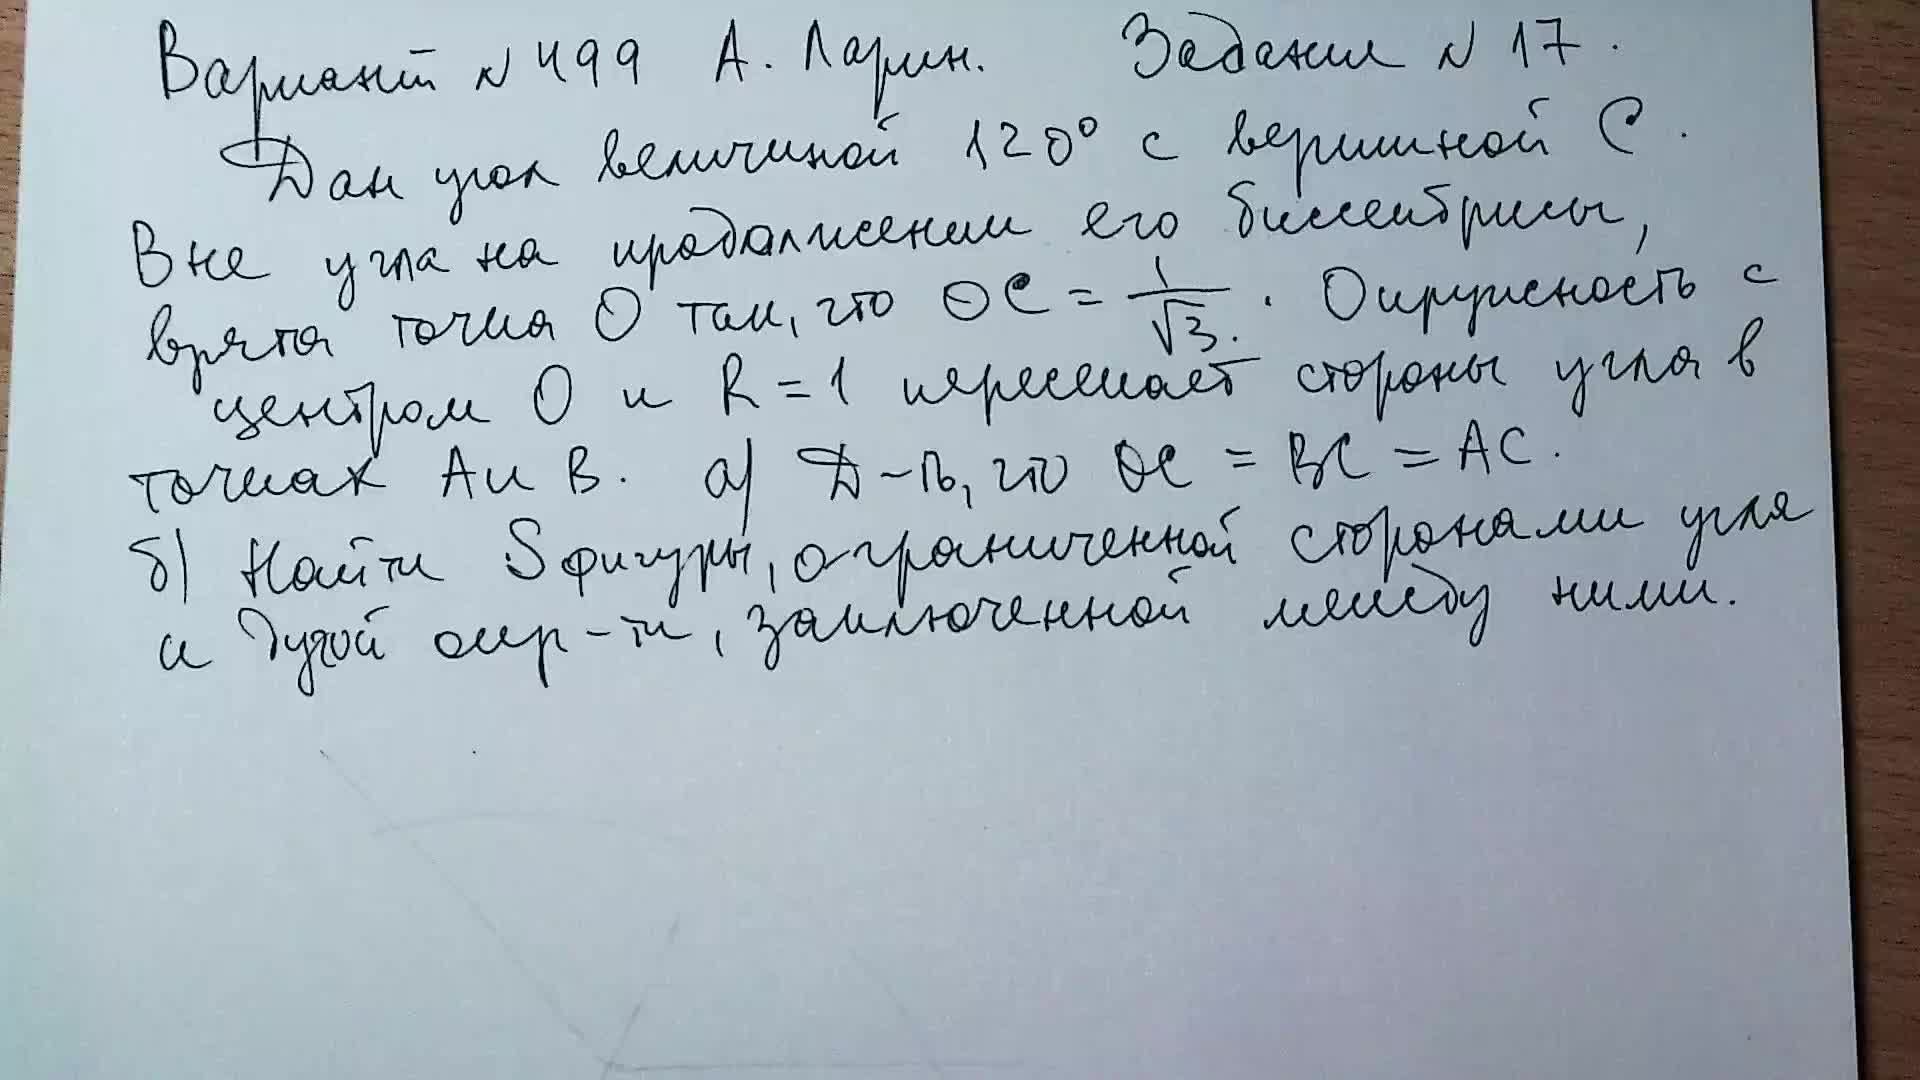 Вариант № 499 А. Ларин. Задание № 17.
Дан угол величиной 120° с вершиной С.
Вне угла на продолжении его биссектрисы,
взята точка О так, что ОС = 1/√3. Окружность с
центром О и R = 1 пересекает стороны угла в
точках А и В. а) Д-ть, что ОС = ВС = АС.
б) Найти S фигуры, ограниченной сторонами угля
и дугой окр-ти, заключенной между ними.